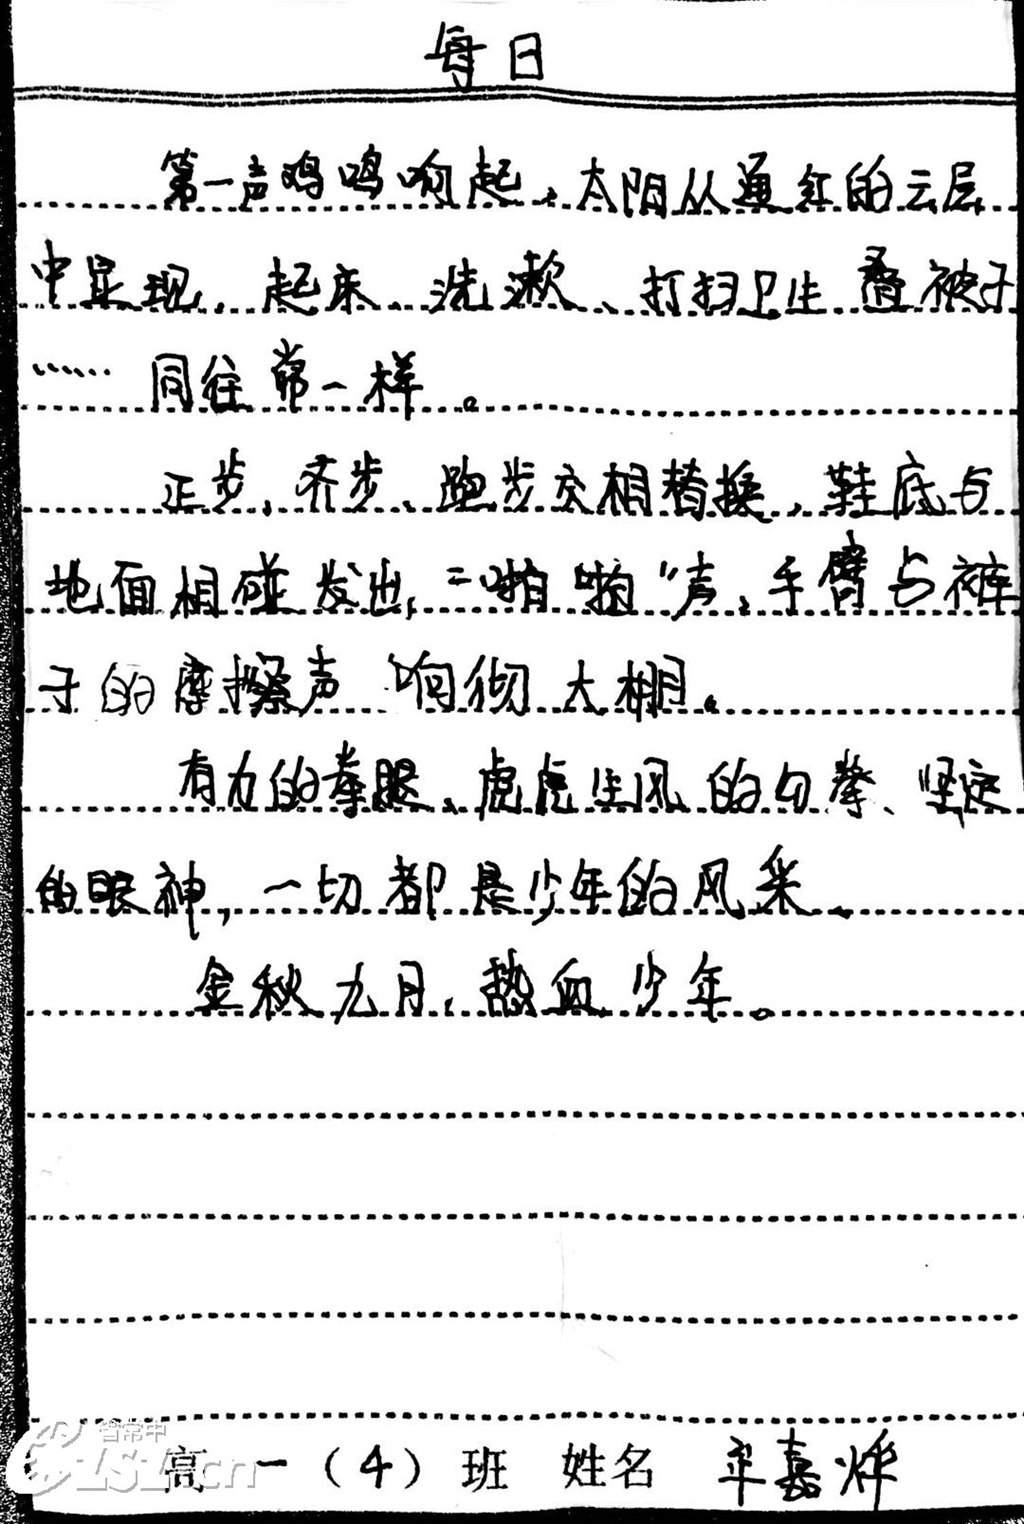 每日
第一声鸡鸣响起、太阳从通红的云层
中显现，起床、洗漱、打扫卫生 叠被子
……同往常一样。
正步、齐步、跑步交相替换，鞋底与
地面相碰发出，“啪啪”声、手臂与裤
子的摩擦声 响彻大棚。
有力的拳腿、虎虎生风的勾拳、坚定
的眼神，一切都是少年的风采、
金秋九月，热血少年。
高一（4）班 姓名 嘉烨
省常中